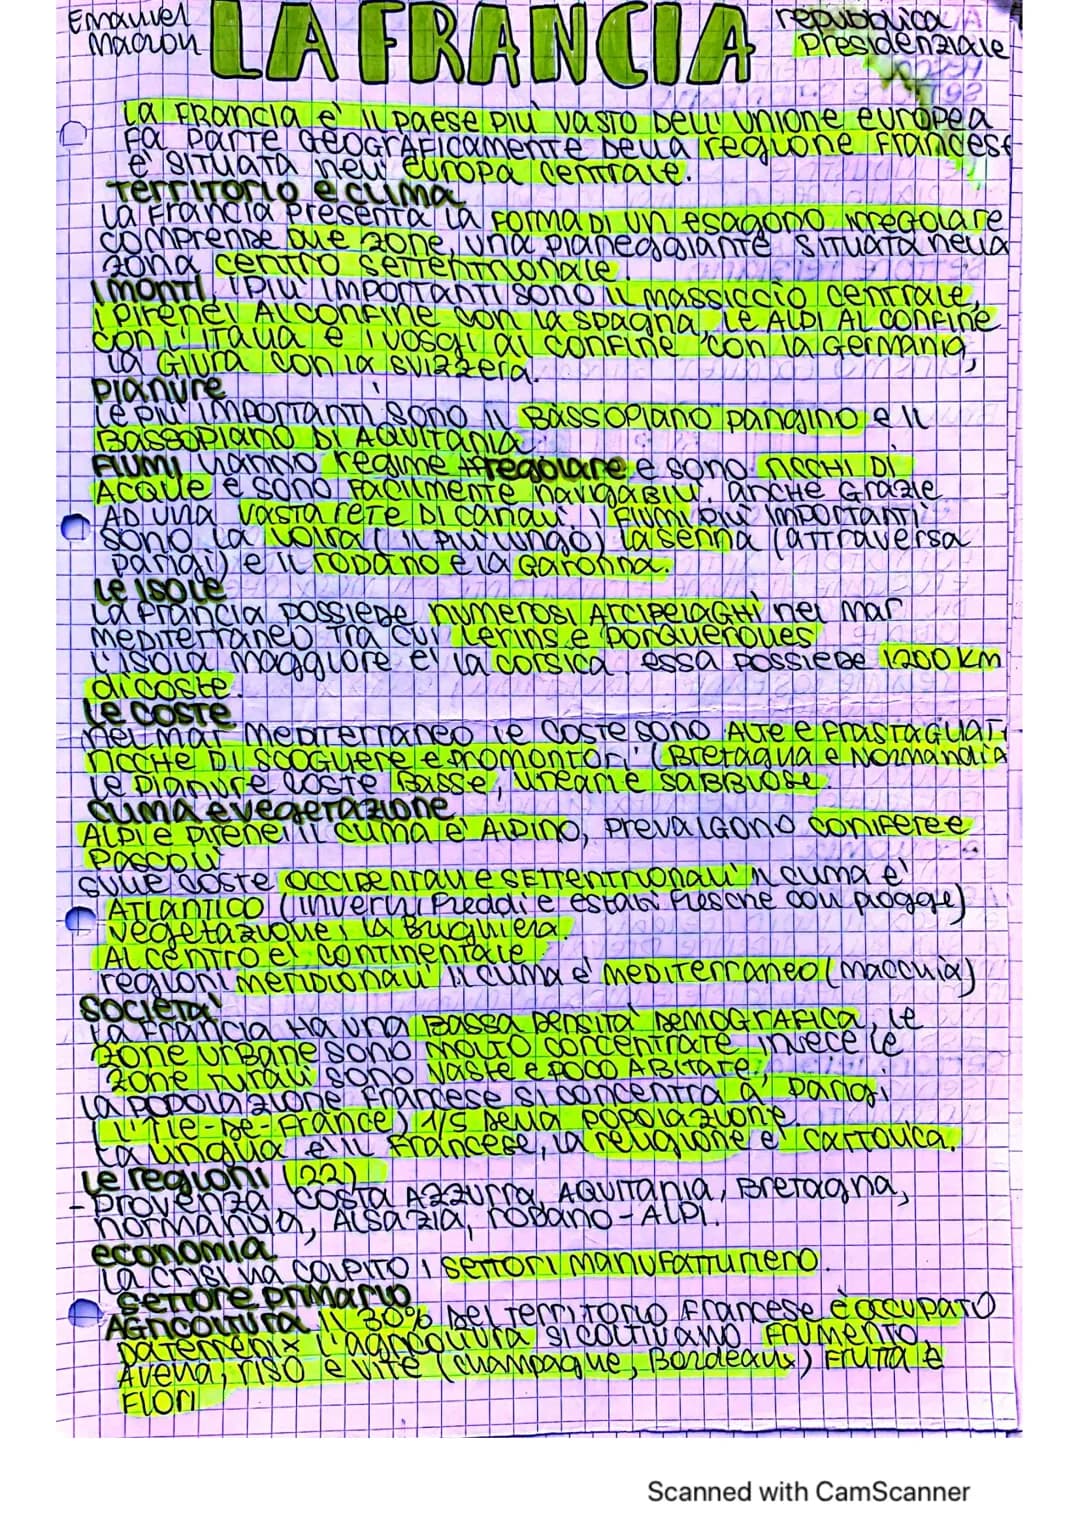 Emanuel
Macron
LA FRANCIA
repubblica
Presidenziale
La Francia è il paese più vasto dell'unione europea
fa parte geograficamente della regione francese
è situata nell'europa centrale.
territorio e clima
La Francia presenta la forma di un esagono irregolare
comprende due zone, una pianeggiante situata nella
zona centro settentrionale.
I monti, i più importanti sono il massiccio centrale,
i Pirenei al confine con la spagna, le Alpi al confine
con l'Italia e i vosgi al confine con la Germania,
la Giura con la svizzera.
pianure
le più importanti sono il Bassopiano parigino e il
Bassopiano di Aquitania.
Fiumi hanno regime regolare e sono ricchi di
Acque e sono facilmente navigabili. anche grazie
AD una vasta rete di canali. i fiumi più importanti
sono la Loira (il più lungo) la senna (attraversa
parigi) e il rodano e la Garonna.
le ISOLE
La Francia possiede numerosi arcipelaghi nel mar
mediterraneo tra cui Lerins e Porquerolles
l'isola maggiore è la corsica. essa possiede 1200 km
di coste.
Le coste
nel mar mediterraneo le coste sono alte e frastagliate
ricche di scogliere e promontori (Bretagna e Normandia
le pianure coste basse, lineari e sabbiose.
clima e vegetazione
ALPI e pirenei il clima è alpino, prevalgono conifere e
pascoli
sulle coste occidentali e settentrionali il clima è
Atlantico (inverni freddi e estati fresche con piogge)
vegetazione, la Brughiera.
Al centro è continentale
regioni meridionali il clima è mediterraneo (macchia)
società
La Francia ha una bassa densità demografica, le
zone urbane sono molto concentrate invece le
zone rurali sono vaste e poco abitate,
la popolazione francese si concentra a parigi
(L'île-de-France) 1/5 della popolazione.
La lingua è il francese, la religione è cattolica.
Le regioni (22)
- Provenza, costa azzurra, Aquitania, Bretagna,
normandia, Alsazia, rodano-Alpi.
economia
La crisi ha colpito i settori manufatturiero.
settore primario
Agricoltura il 30% del territorio francese è occupato
l'agricoltura si coltivano frumento,
Avena, riso e vite (champagne, Bordeaux) frutta e
fiori
Scanned with CamScanner